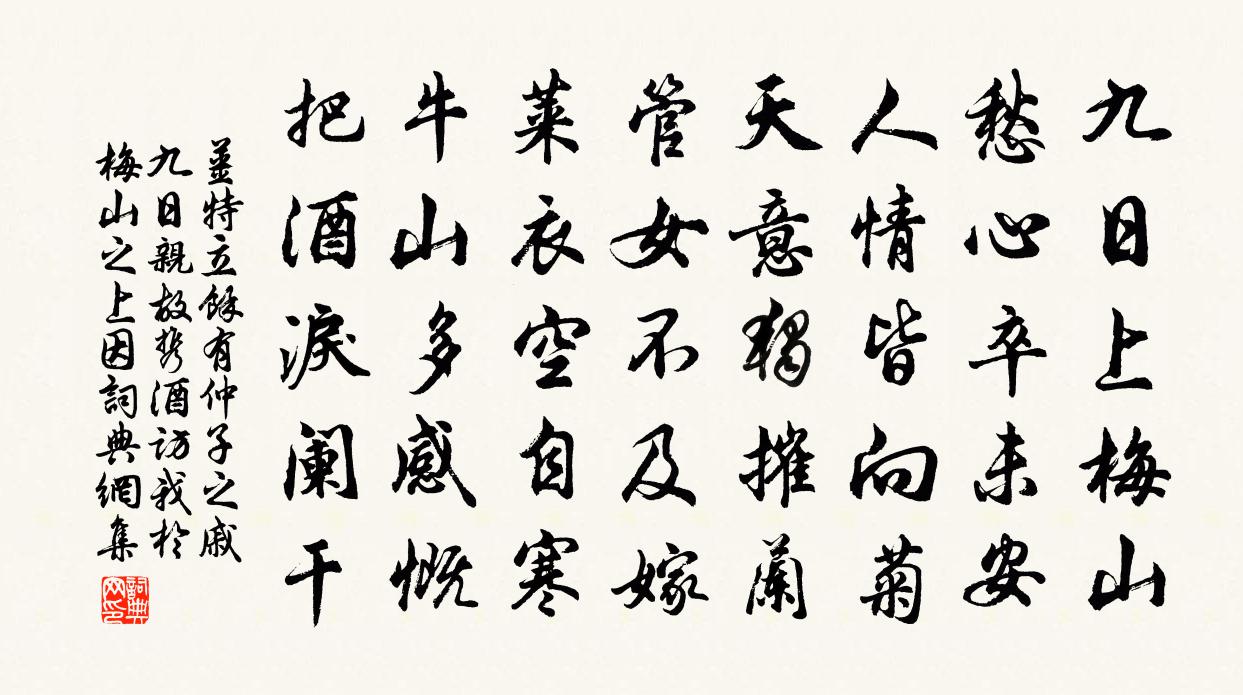 九日上梅山
愁心卒未安
人情皆向菊
天意獨摧蘭
管女不及嫁
萊衣空自寒
牛山多感慨
把酒淚闌干
姜特立餘有仲子之戚
九日親故携酒訪我於
梅山之上因詞典網集